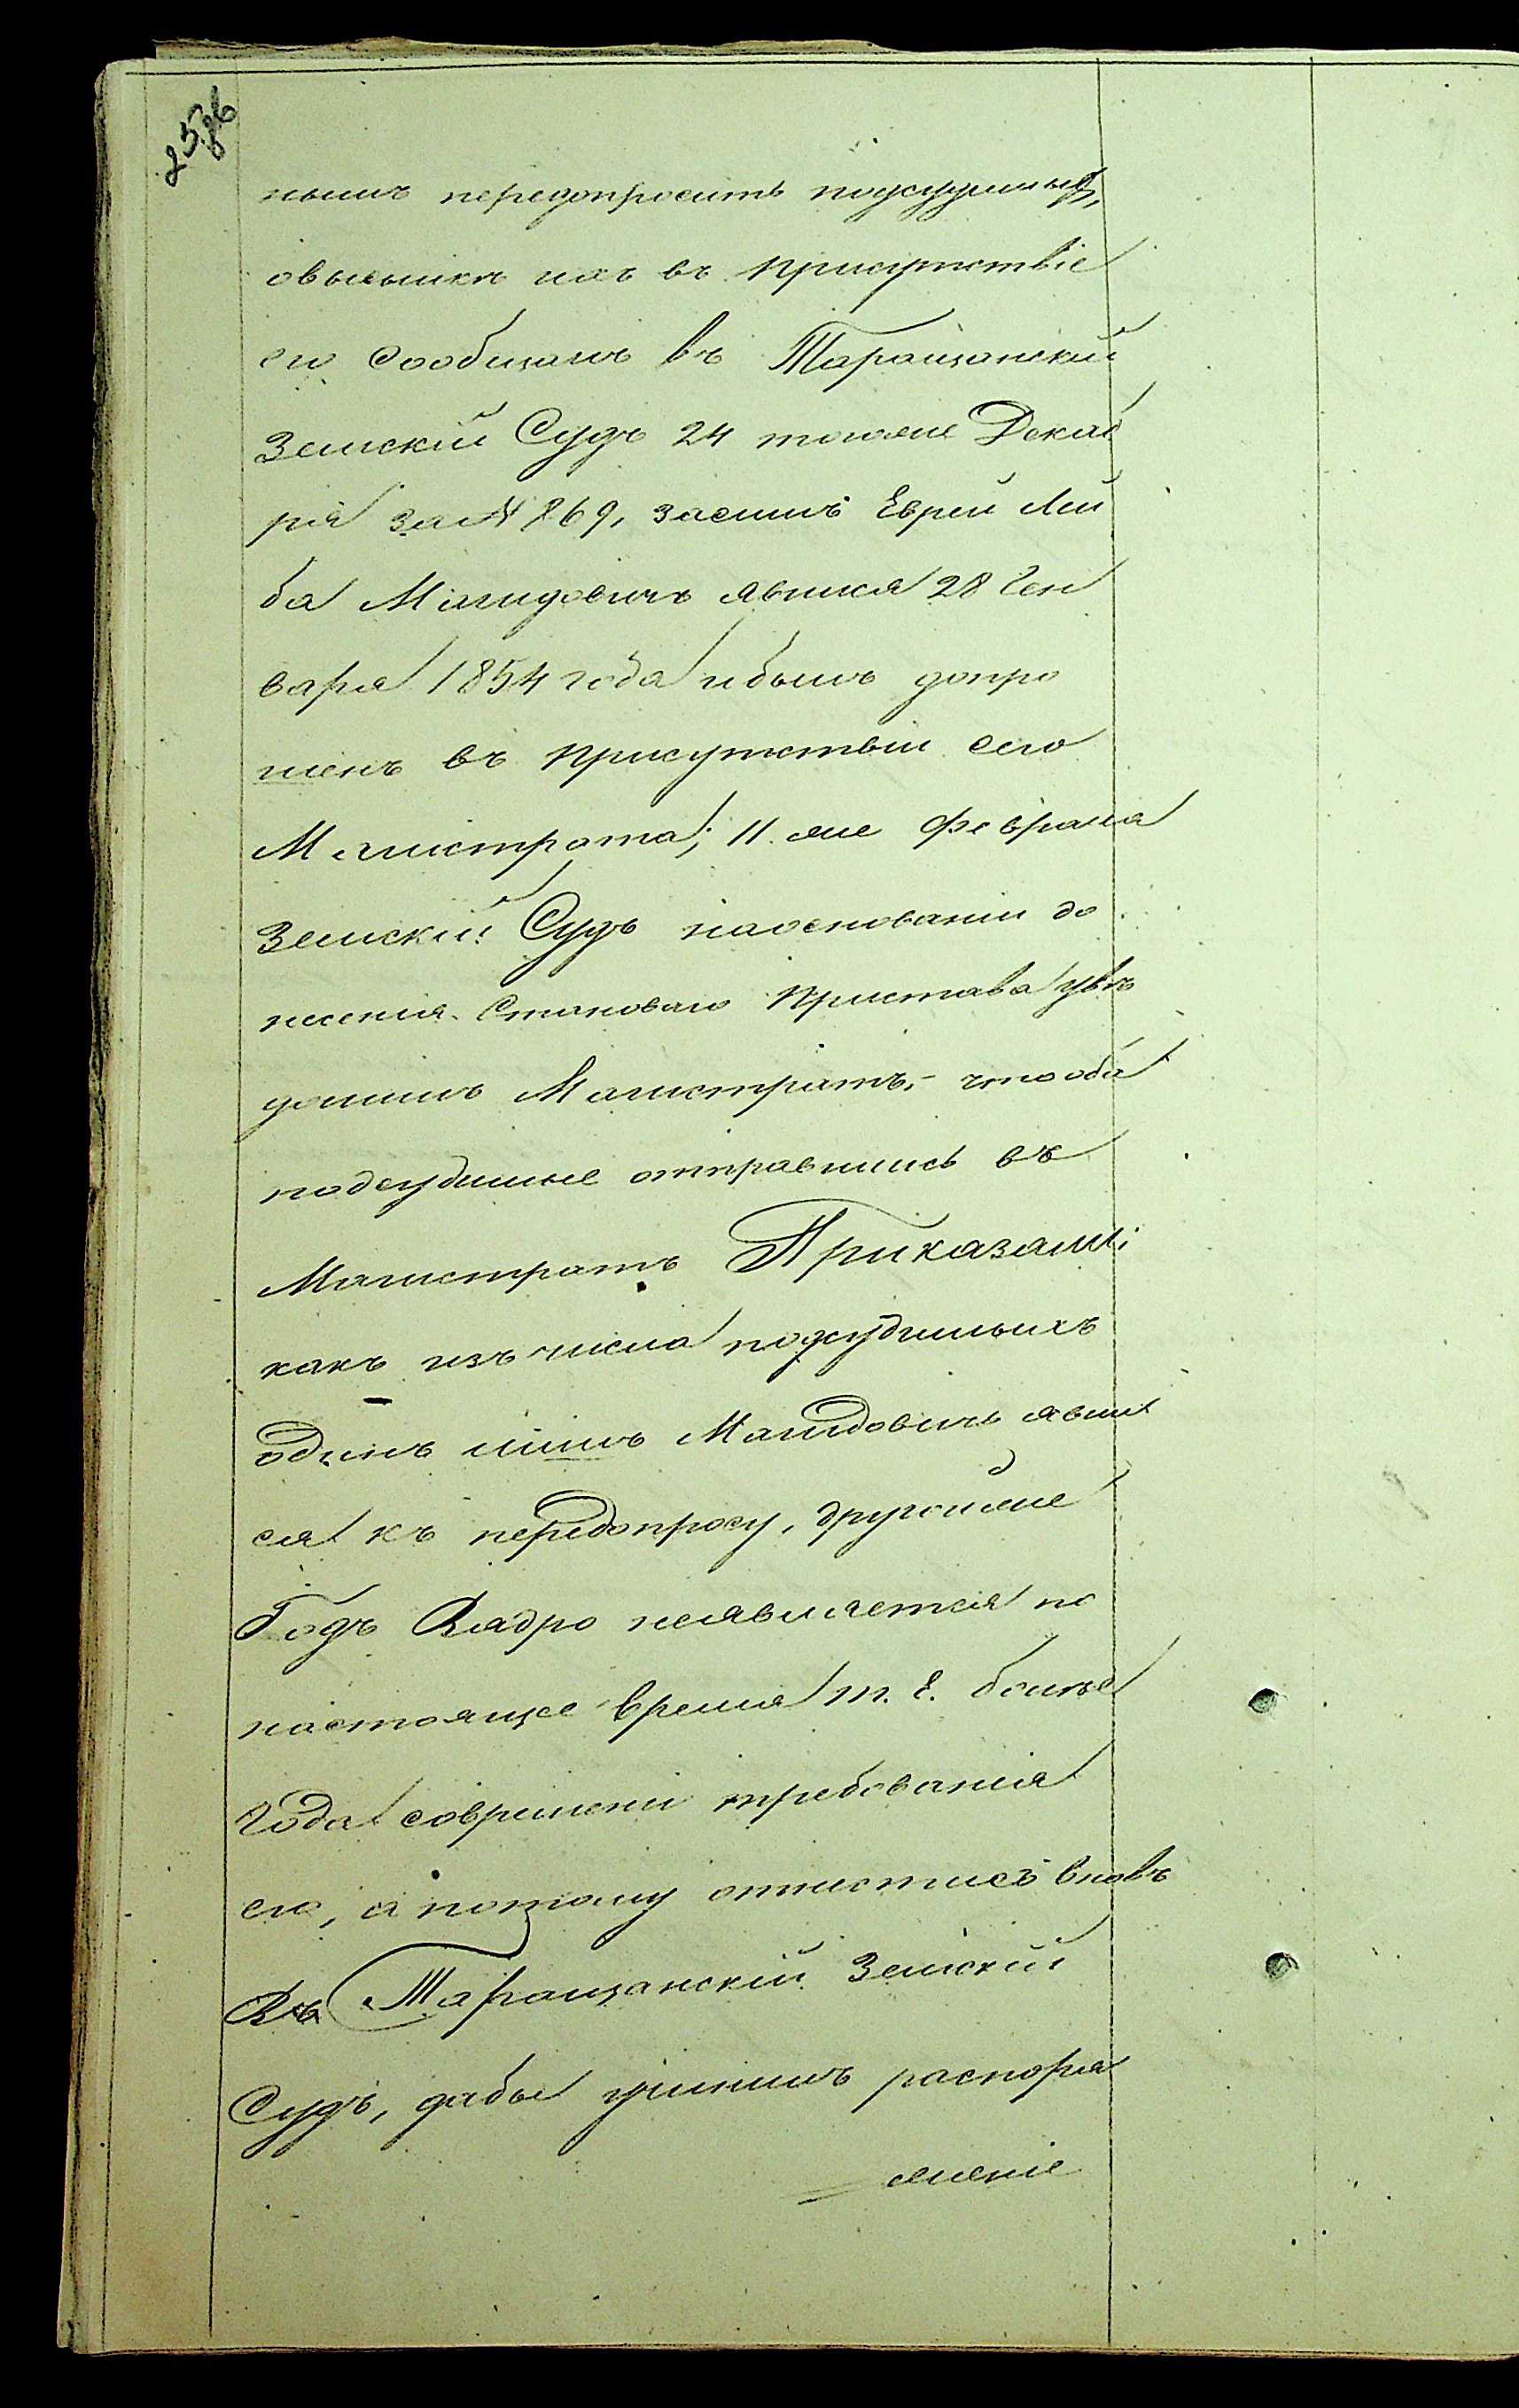 257об
нымъ передопросить подсудимыхъ,
овысылкѣ ихъ въ присутствіе
его сообщалъ въ Таращанскій
Земскій Судъ 24 тогоже Декаб
ря за № 869, засимъ Еврей Лей
ба Магидовичъ явился 28 Ген
варя 1854 года ибылъ допро
шенъ въ присутствіи сего
Магистрата; 11. же Февраля
Земскій Судъ наоснованіи до
несенія Становаго Пристава увѣ
домилъ Магистратъ,- что оба
подсудимые отправились въ
Магистратъ Приказали:
какъ изъ числа подсудимыхъ
одинъ лишь Магидовичъ явил
ся къ передопросу, другойже
Годъ Кадро неявляется по
настоящее время т. е. болѣе
года современи требованія
его, а потому отнестись вновь
Въ Таращанскій Земскій
Судъ, дабы учинилъ распоря
женіе